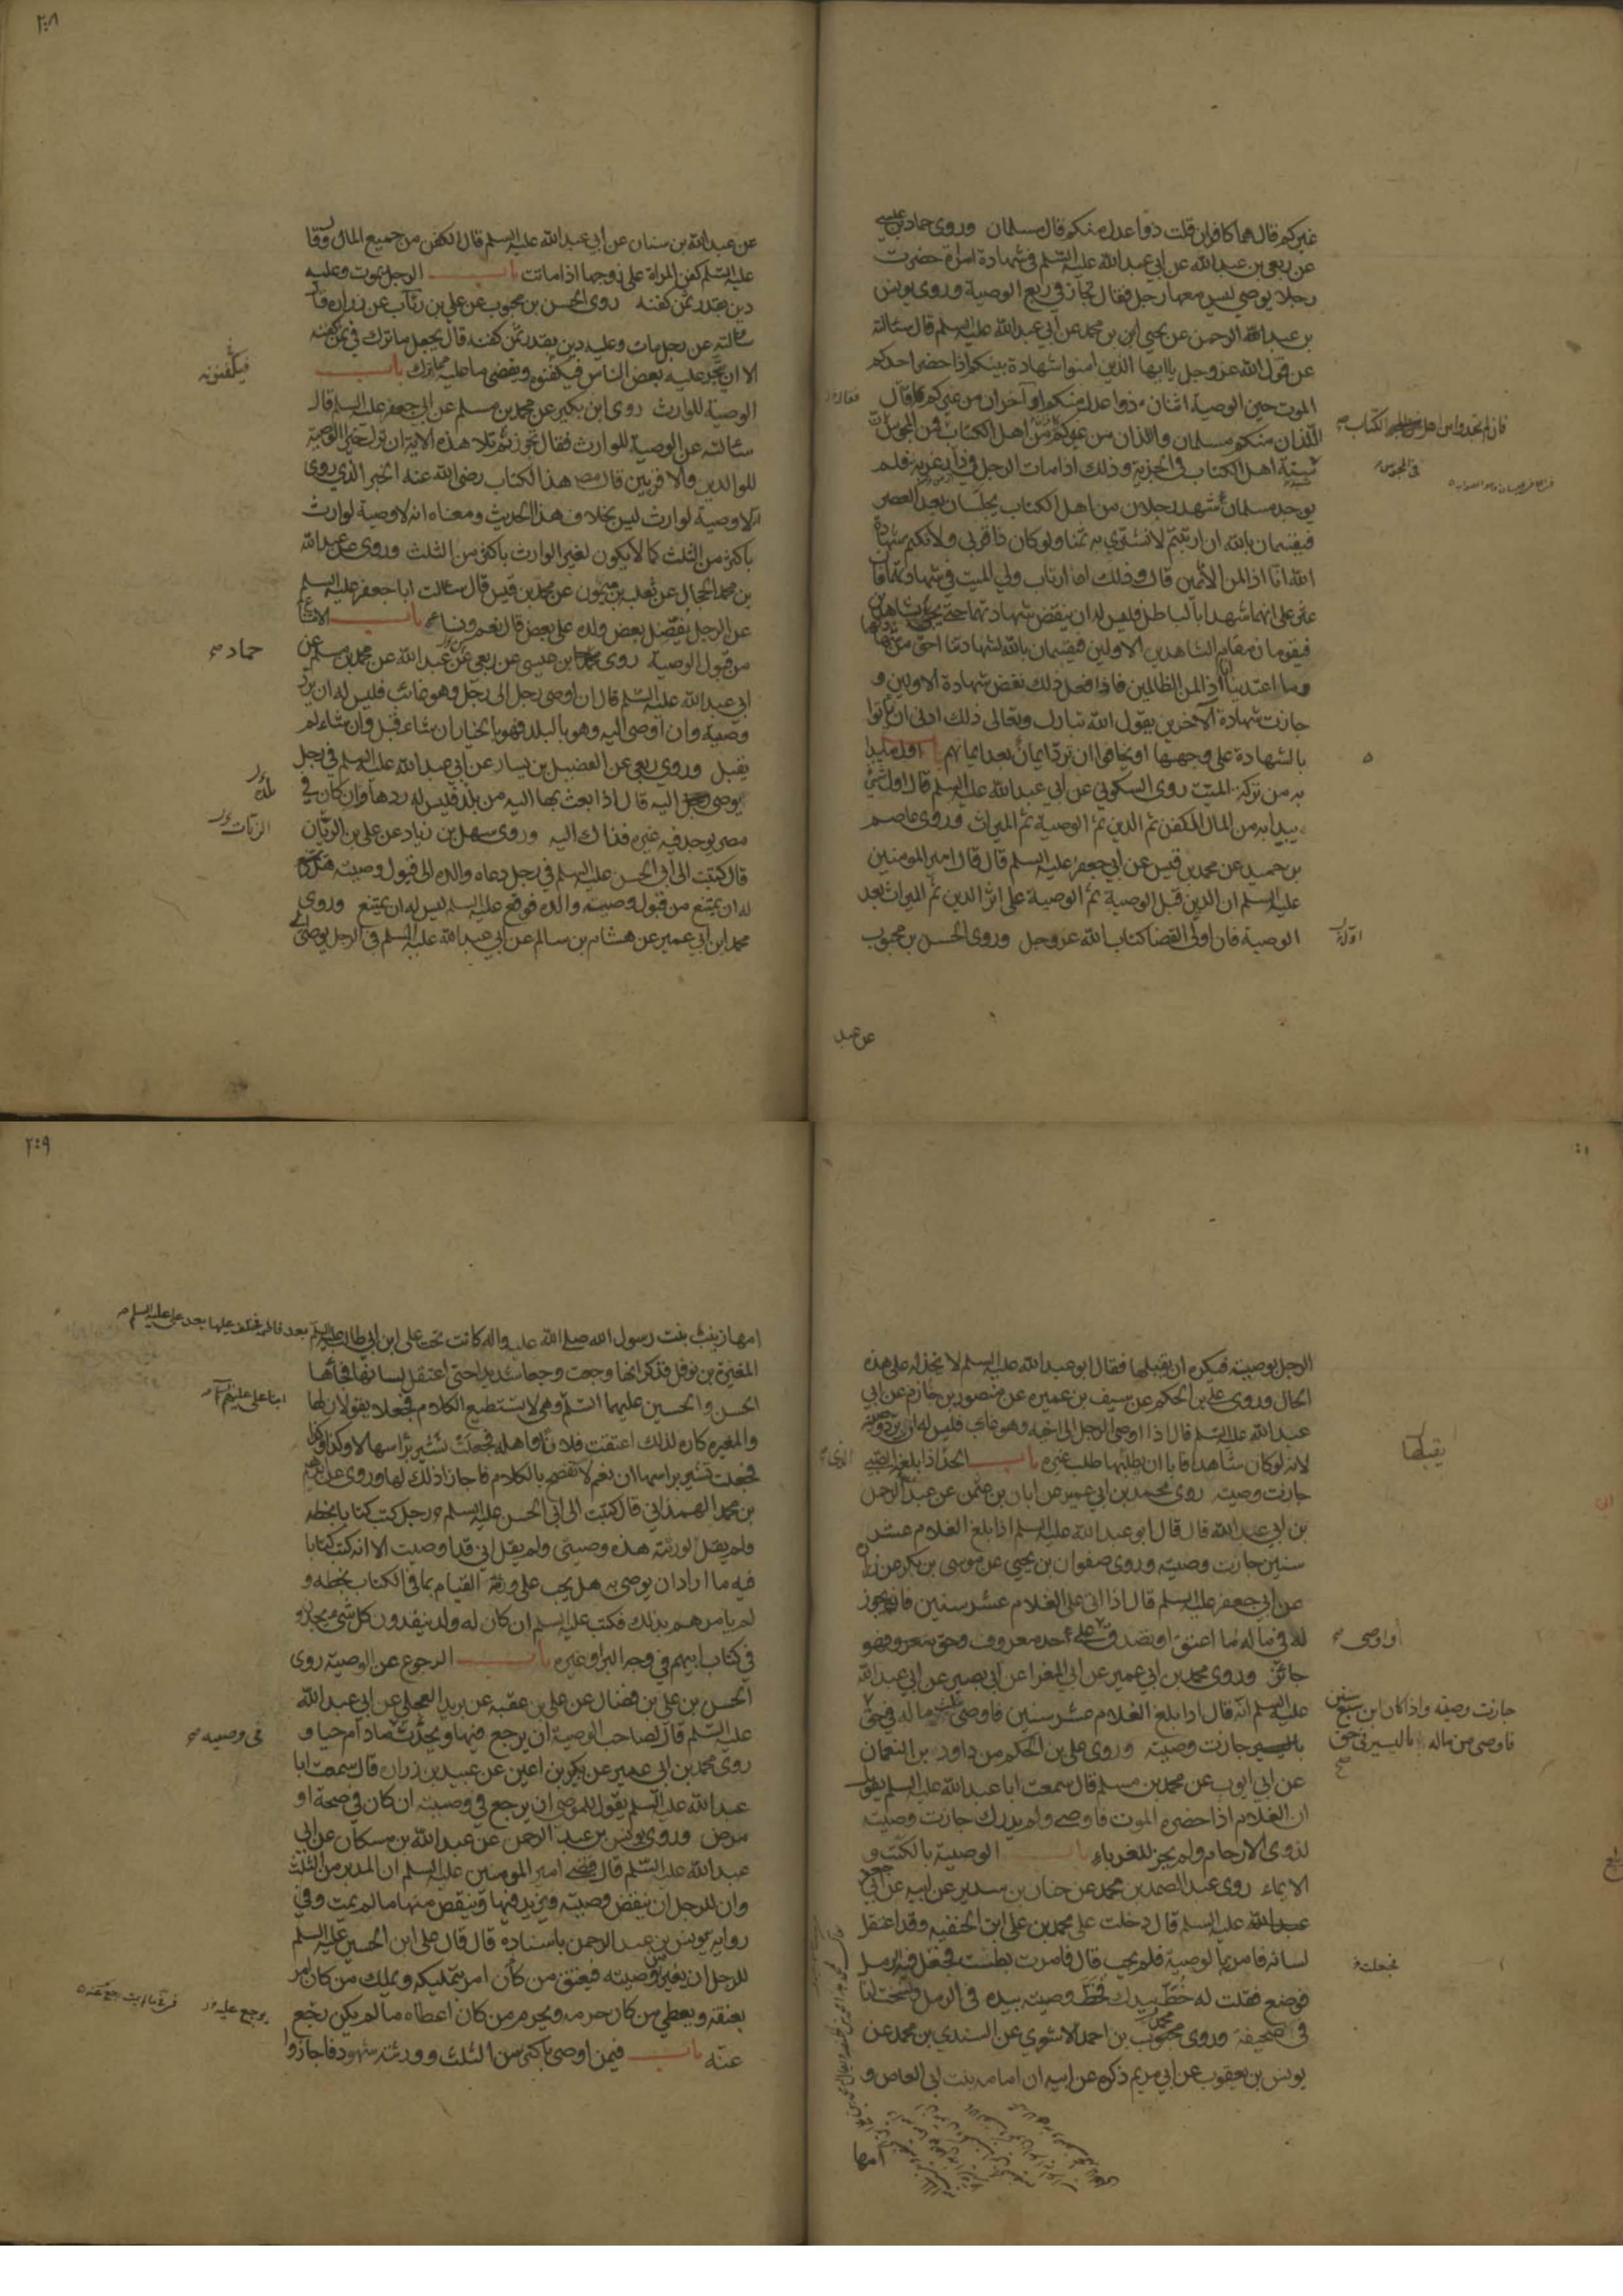 غيركم قال هما كافران قلت ذوا عدل منكم قال مسلمان وروى حماد بن عيسى
عن ربعي بن عبد الله عن ابي عبد الله عليه السلم في شهادة امراة حضرت
رجلا يوصي ليس معها رجل فقال تجاز في ربع الوصية وروى يونس
بن عبد الرحمن عن يحيى ابن بن محمد عن ابي عبد الله عليه السلم قال سئالته
عن قول الله عز وجل يا ايها الذين امنوا شهادة بينكم اذا حضر احدكم
الموت حين الوصية اثنان ذوا عدل منكم او آخران من غيركم قال
اللذان منكم مسلمان واللذان من غيركم من اهل الكتاب فمن المجوس لان
سنة اهل الكتاب في الجزية وذلك اذا مات الرجل في دار غربة فلم
يوجد مسلمان شهد رجلان من اهل الكتاب يحبسان بعد العصر
فيقسمان بالله ان ارتبتم لا نشتري به ثمنا ولو كان ذا قربى ولا نكتم شهادة
الله انا اذا لمن الآثمين قال وذلك اذا ارتاب ولي الميت في شهادتهما فان
عثر على انهما شهدا بالباطل فليس له ان ينقض شهادتهما حتى يجئ بشاهدين
فيقومان مقام الشاهدين الاولين فيقسمان بالله لشهادتنا احق من شهادتهما
وما اعتدينا انا اذا لمن الظالمين فاذا فعل ذلك نقض شهادة الاولين و
جازت شهادة الآخرين يقول الله تبارك وتعالى ذلك ادنى ان يأتوا
بالشهادة على وجهها او يخافوا ان ترد ايمان بعد ايمانهم باب اول ما يبدا
به من تركة الميت روى السكوني عن ابي عبد الله عليه السلم قال اول شئ
يبدا به من المال الكفن ثم الدين ثم الوصية ثم الميراث وروى عاصم
بن حميد عن محمد بن قيس عن ابي جعفر عليه السلم قال قال امير المومنين
عليه السلم ان الدين قبل الوصية ثم الوصية على اثر الدين ثم الميراث بعد
الوصية فان اولى القضا كتاب الله عز وجل وروى الحسن بن محبوب
فان لم تجدوا من اهل الكتاب
في المجوس
عن عبد
٢٠٨
عن عبد الله بن سنان عن ابي عبد الله عليه السلم قال الكفن من جميع المال وقال
عليه السلم كفن المراة على زوجها اذا ماتت باب الرجل يموت وعليه
دين بقدر ثمن كفنه روى الحسن بن محبوب عن علي بن رئآب عن زرارة قال
سالته عن رجل مات وعليه دين بقدر ثمن كفنه قال يجعل ما ترك في ثمن كفنه
الا ان يتجر عليه بعض الناس فيكفنوه ويقضى ما عليه مما ترك باب
الوصية للوارث روى ابن بكير عن محمد بن مسلم عن ابي جعفر عليه السلم قال
سئالته عن الوصية للوارث فقال تجوز ثم تلا هذه الاية ان ترك خيرا الوصية
للوالدين والاقربين قال مص هذا الكتاب رضى الله عنه الخبر الذي روى
انه لا وصية لوارث ليس بخلاف هذا الحديث ومعناه انه لا وصية لوارث
باكثر من الثلث كما لا يكون لغير الوارث باكثر من الثلث وروى عن عبد الله
بن محمد الحجال عن ثعلبة بن ميمون عن محمد بن قيس قال سالت ابا جعفر عليه السلم
عن الرجل يفضل بعض ولده على بعض قال نعم ونساءه باب الامتناع
من قبول الوصية روى محمد ابن عيسى عن ربعي عن عبد الله عن محمد بن مسلم عن
ابي عبد الله عليه السلم قال ان اوصى رجل الى رجل وهو غائب فليس له ان يرد
وصيته وان اوصى اليه وهو بالبلد فهو بالخيار ان شاء قبل وان شاء لم
يقبل وروى ربعي عن الفضيل بن يسار عن ابي عبد الله عليه السلم في رجل
يوصى اليه قال اذا بعث بها اليه من بلد فليس له ردها وان كان في
مصر يوجد فيه غيره فذاك اليه وروى سهل بن زياد عن علي بن الريان
قال كتبت الى ابي الحسن عليه السلم في رجل دعاه والده الى قبول وصيته هل
له ان يمتنع من قبول وصيته والده فوقع عليه السلم ليس له ان يمتنع وروى
محمد ابن ابي عمير عن هشام بن سالم عن ابي عبد الله عليه السلم في الرجل يوصى الى
فيكفنونه
حماد
بلد
الزيات
الرجل بوصيته فيكره ان يقبلها فقال ابو عبد الله عليه السلم لا يخذله على هذه
الحال وروى علي بن الحكم عن سيف بن عميرة عن منصور بن حازم عن ابي
عبد الله عليه السلم قال اذا اوصى الرجل الى اخيه وهو غايب فليس له ان يرد وصيته
لانه لو كان شاهدا فابا ان يقبلها طلب غيره باب الحد اذا بلغه الصبي
جازت وصيته روى محمد بن ابي عمير عن ابان بن عثمن عن عبد الرحمن
بن ابي عبد الله قال قال ابو عبد الله عليه السلم اذا بلغ الغلام عشر
سنين جازت وصيته وروى صفوان بن يحيى عن موسى بن بكر عن زرارة
عن ابي جعفر عليه السلم قال اذا اتى على الغلام عشر سنين فانه يجوز
له في ماله ما اعتق او تصدق على حد معروف وحق بمعروف فهو
جائز وروى محمد بن ابي عمير عن ابي المغرا عن ابي بصير عن ابي عبد الله
عليه السلم انه قال اذا بلغ الغلام عشر سنين فاوصى بثلث ماله في حق
باليسير جازت وصيته وروى علي بن الحكم عن داود بن النعمان
عن ابي ايوب عن محمد بن مسلم قال سمعت ابا عبد الله عليه السلم يقول
ان الغلام اذا حضره الموت فاوصى ولم يدرك جازت وصيته
لذوى الارحام ولم يجز للغرباء باب الوصية بالكتب و
الايماء روى عبد الصمد بن محمد عن حنان بن سدير عن ابيه عن ابي جعفر
عبد الله عليه السلم قال دخلت على محمد بن علي ابن الحنفيه وقد اعتقل
لسانه فامرته بالوصية فلم يجب قال فامرت بطشت فجعل فيه الرمل
فوضع فقلت له خط بيدك فخط وصيته بيده في الرمل ونسخت انا
في صحيفة وروى محمد بن احمد الاشعري عن السندي بن محمد عن
يونس بن يعقوب عن ابي مريم ذكره عن ابيه ان امامه بنت ابي العاص و
يقبلها
او اوصى
جازت وصيته واذا كان ابن سبع سنين
فاوصى من ماله باليسير في حق
فجعلت
امها
٢٠٩
امها زينب بنت رسول الله صلى الله عليه واله كانت تحت علي ابن ابي طالب عليه السلم بعد فاطمة فخلف عليها بعد علي عليه السلم
المغيرة بن نوفل فذكر انها وجعت وجعا شديدا حتى اعتقل لسانها فجآها
الحسن والحسين عليهما السلم وهي لا تستطيع الكلام فجعلا يقولان لها
والمغيره كاره لذلك اعتقت فلانا واهله فجعلت تشير براسها لا وكذا وكذا
فجعلت تشير براسها ان نعم لا تفصح بالكلام فاجازا ذلك لها وروى عن ابراهيم
بن محمد الهمذاني قال كتبت الى ابي الحسن عليه السلم رجل كتب كتابا بخطه
ولم يقل لورثته هذه وصيتي ولم يقل اني قد اوصيت الا انه كتب كتابا
فيه ما اراد ان يوصى به هل يجب على ورثته القيام بما في الكتاب بخطه و
لم يامرهم بذلك فكتب عليه السلم ان كان له ولد ينفذون كل شئ يجدون
في كتاب ابيهم في وجه البر او غيره باب الرجوع عن الوصية روى
الحسن بن علي بن فضال عن علي بن عقبه عن بريد العجلي عن ابي عبد الله
عليه السلم قال لصاحب الوصية ان يرجع فيها ويحدث ما دام حيا و
روى محمد بن ابي عمير عن بكر بن اعين عن عبيد بن زرارة قال سمعت ابا
عبد الله عليه السلم يقول للموصى ان يرجع في وصيته ان كان في صحة او
مرض وروى يونس بن عبد الرحمن عن عبد الله بن مسكان عن ابي
عبد الله عليه السلم قال قضى امير المومنين عليه السلم ان المدبر من الثلث
وان للرجل ان ينقض وصيته فيزيد فيها وينقص منها ما لم يمت وفي
رواية يونس بن عبد الرحمن باسناده قال قال علي ابن الحسين عليه السلم
للرجل ان يغير من وصيته فيعتق من كان امر بتمليكه ويملك من كان امر
بعتقه ويعطي من كان حرمه ويحرم من كان اعطاه ما لم يكن رجع
عنه باب فيمن اوصى باكثر من الثلث وورثته شهود فاجازوا
في وصيته
يرجع عليه